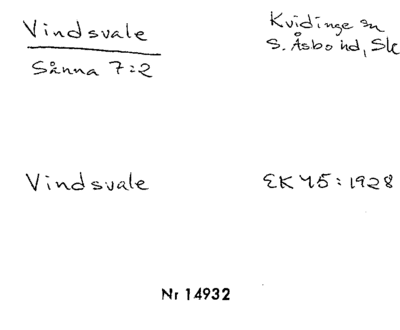 Vindsvale
Kvidinge sn
S. Åsbo hd, Sk
Sånna 7:2
Vindsvale
EK 45:1928
Nr 14932